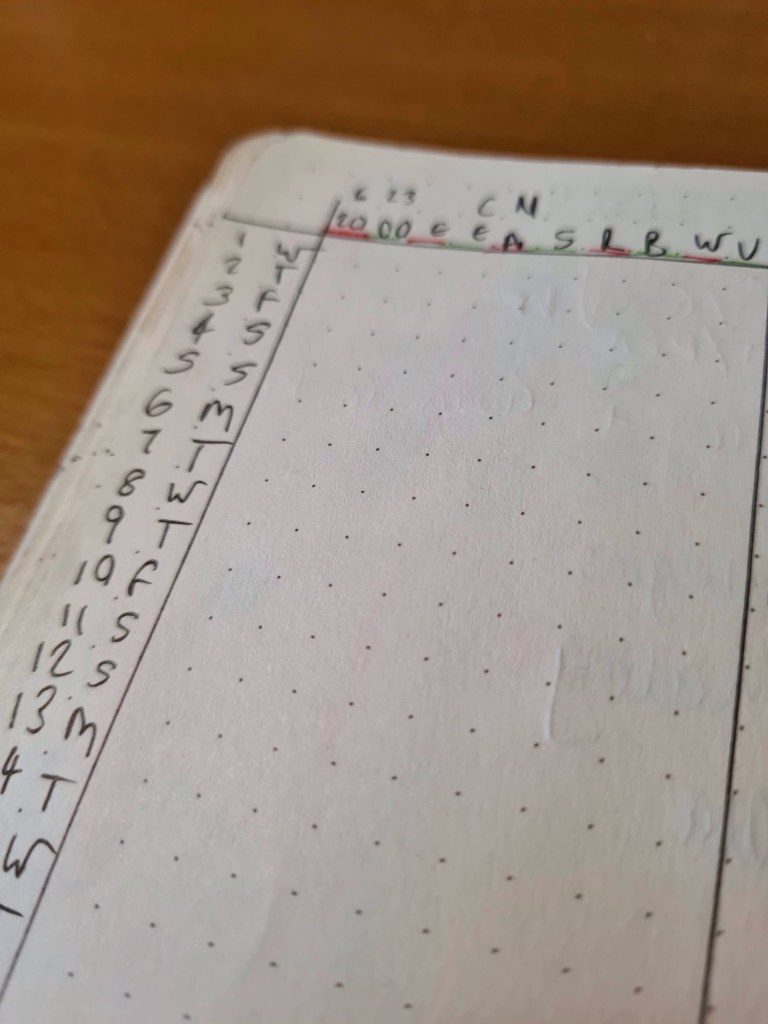 6 23 C N
20 00 E E A S R B W V
1 W
2 T
3 F
4 S
5 S
6 M
7 T
8 W
9 T
10 F
11 S
12 S
13 M
4 T
W